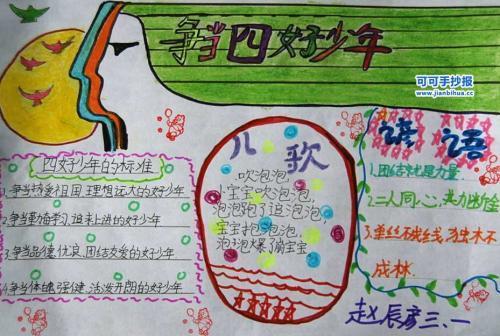 争当四好少年
可可手抄报
www.jianbihua.cc
四好少年的标准
1.争当热爱祖国 理想远大的好少年
2.争当勤奋学习、追求上进的好少年
3.争当品德优良、团结友爱的好少年
4.争当体魄强健、活泼开朗的好少年
儿歌
吹泡泡
小宝宝吹泡泡,
泡泡跑了追泡泡
宝宝抱泡泡,
泡泡爆 宝宝
谚语
1.团结就是力量
2.二人同心,其力断金
3.单丝不成线,独木不
成林.
赵辰 三.一